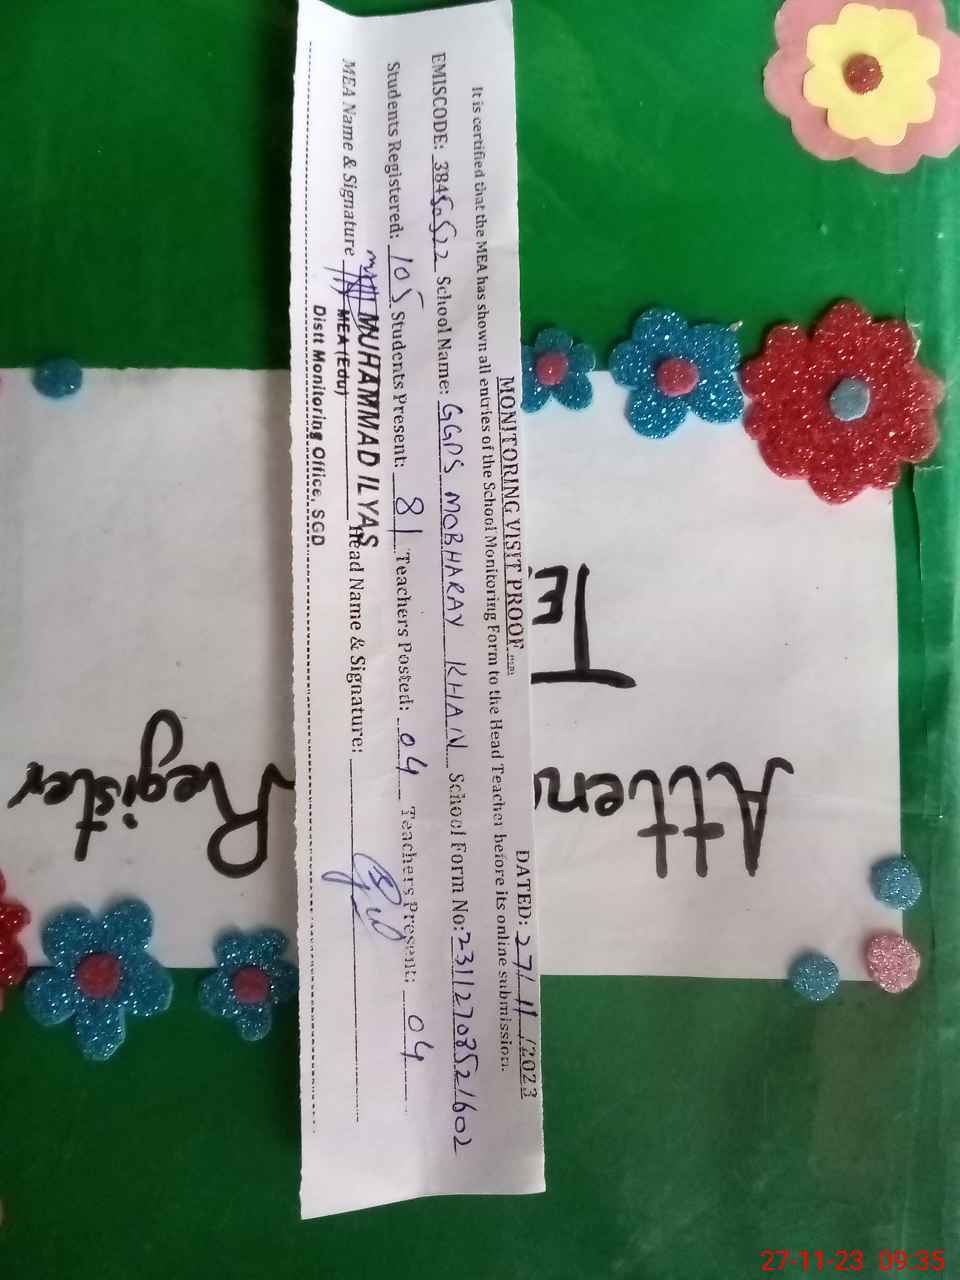 MONITORING VISIT PROOF
DATED: 27/11/2023
It is certified that the MEA has shown all entries of the School Monitoring Form to the Head Teacher before its online submission.
EMISCODE: 38450522 School Name: GGPS MOBHARAY KHAN School Form No: 23112708521602
Students Registered: 105 Students Present: 81 Teachers Posted: 04 Teachers Present: 04
MEA Name & Signature Head Name & Signature:
MUHAMMAD ILYAS
MEA (Edu)
Distt Monitoring Office, SGD
TE
Atten Register
27-11-23 09:35